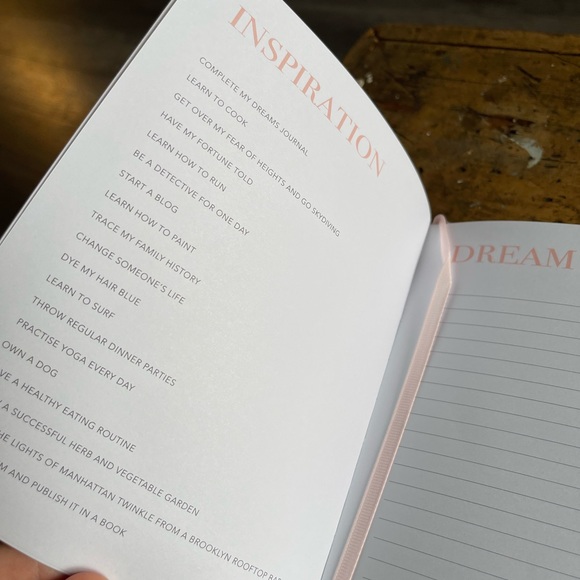 INSPIRATION
COMPLETE MY DREAMS JOURNAL
LEARN TO COOK
GET OVER MY FEAR OF HEIGHTS AND GO SKYDIVING
HAVE MY FORTUNE TOLD
LEARN HOW TO RUN
BE A DETECTIVE FOR ONE DAY
START A BLOG
LEARN HOW TO PAINT
TRACE MY FAMILY HISTORY
CHANGE SOMEONE'S LIFE
DYE MY HAIR BLUE
LEARN TO SURF
THROW REGULAR DINNER PARTIES
PRACTISE YOGA EVERY DAY
OWN A DOG
A HEALTHY EATING ROUTINE
A SUCCESSFUL HERB AND VEGETABLE GARDEN
LIGHTS OF MANHATTAN TWINKLE FROM A BROOKLYN ROOFTOP BAR
AND PUBLISH IT IN A BOOK
DREAM